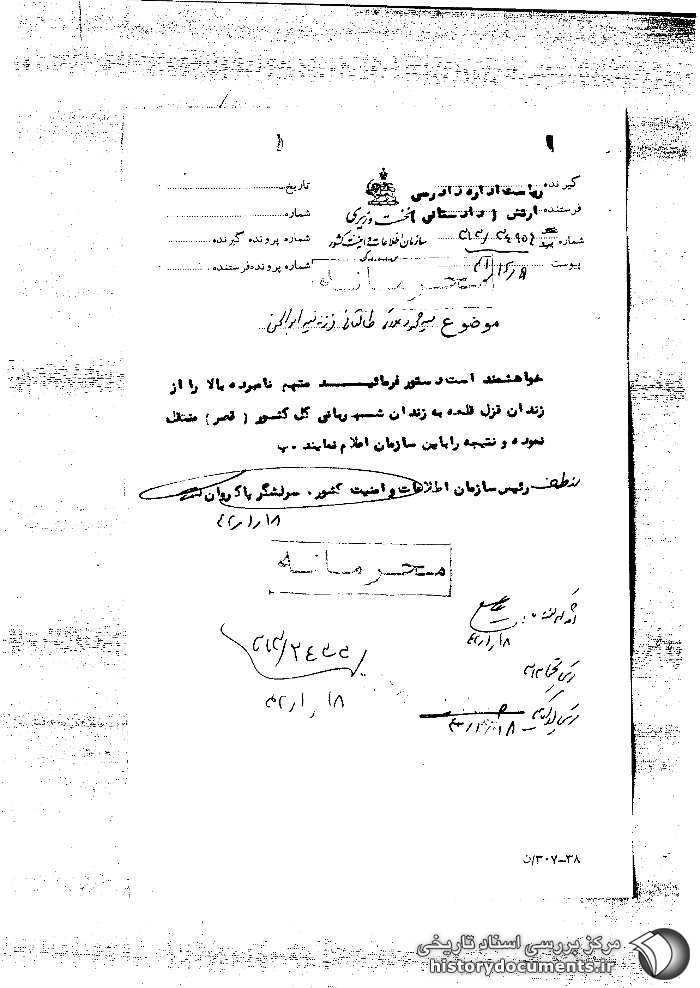 گیرنده ریاست اداره دادرسی
تاریخ
فرستنده ارتش (دادستانی)
نخست وزیری
شماره
شماره
سازمان اطلاعات و امنیت کشور
شماره پرونده گیرنده
پیوست
شماره پرونده فرستنده
محرمانه
موضوع سید محمود علائی طالقانی فرزند سید ابوالحسن
خواهشمند است دستور فرمائید متهم نامبرده بالا را از
زندان قزل قلعه به زندان شهربانی کل کشور (قصر) منتقل
نموده و نتیجه را باین سازمان اعلام نمایند . ب
رئیس سازمان اطلاعات و امنیت کشور . سرلشگر پاکروان
۴۲/۱/۱۸
محرمانه
۴۲/۱/۱۸
۴۲/۱/۱۸
۳۰۷-۳۸/ن
مرکز بررسی اسناد تاریخی
historydocuments.ir